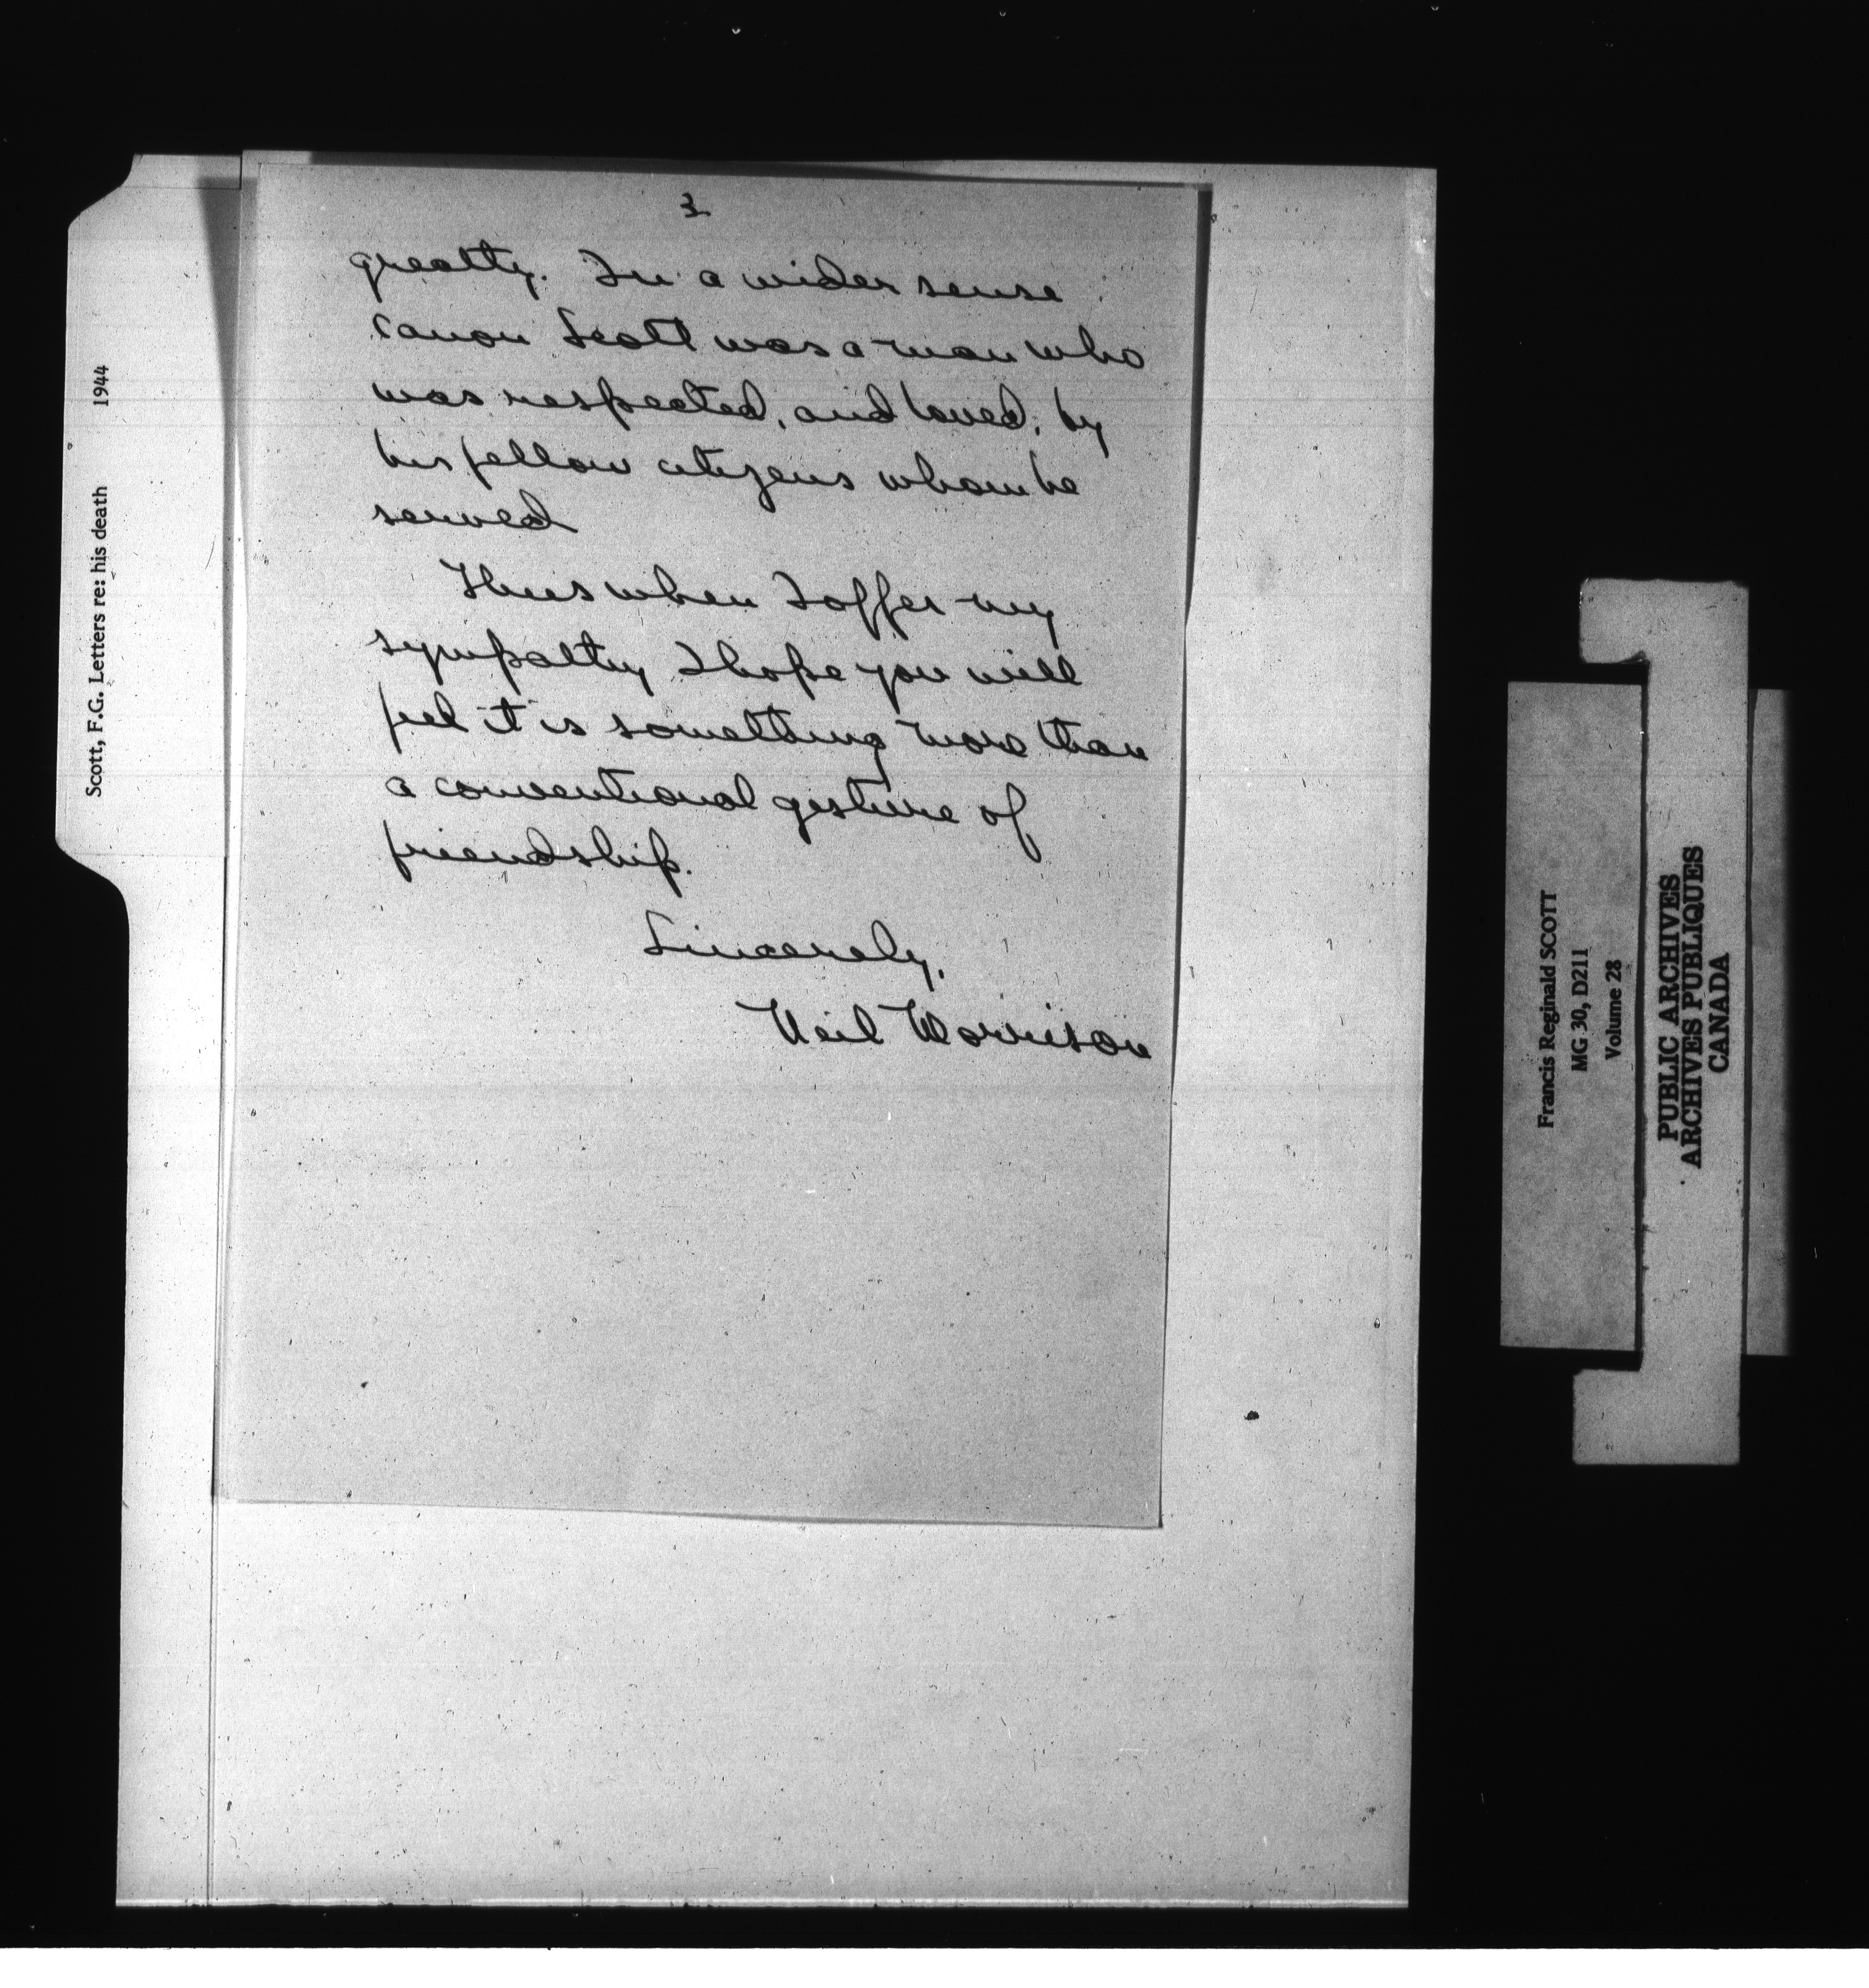 3
greatly. In a wider sense
Canon Scott was a man who
was respected, and loved, by
his fellow citizens whom he
served
Thus when I offer my
sympathy I hope you will
feel it is something more than
a conventional gesture of
friendship.
Sincerely,
Neil Morrison
Scott, F.G. Letters re: his death 1944
Francis Reginald SCOTT
MG 30, D211
Volume 28
PUBLIC ARCHIVES
ARCHIVES PUBLIQUES
CANADA